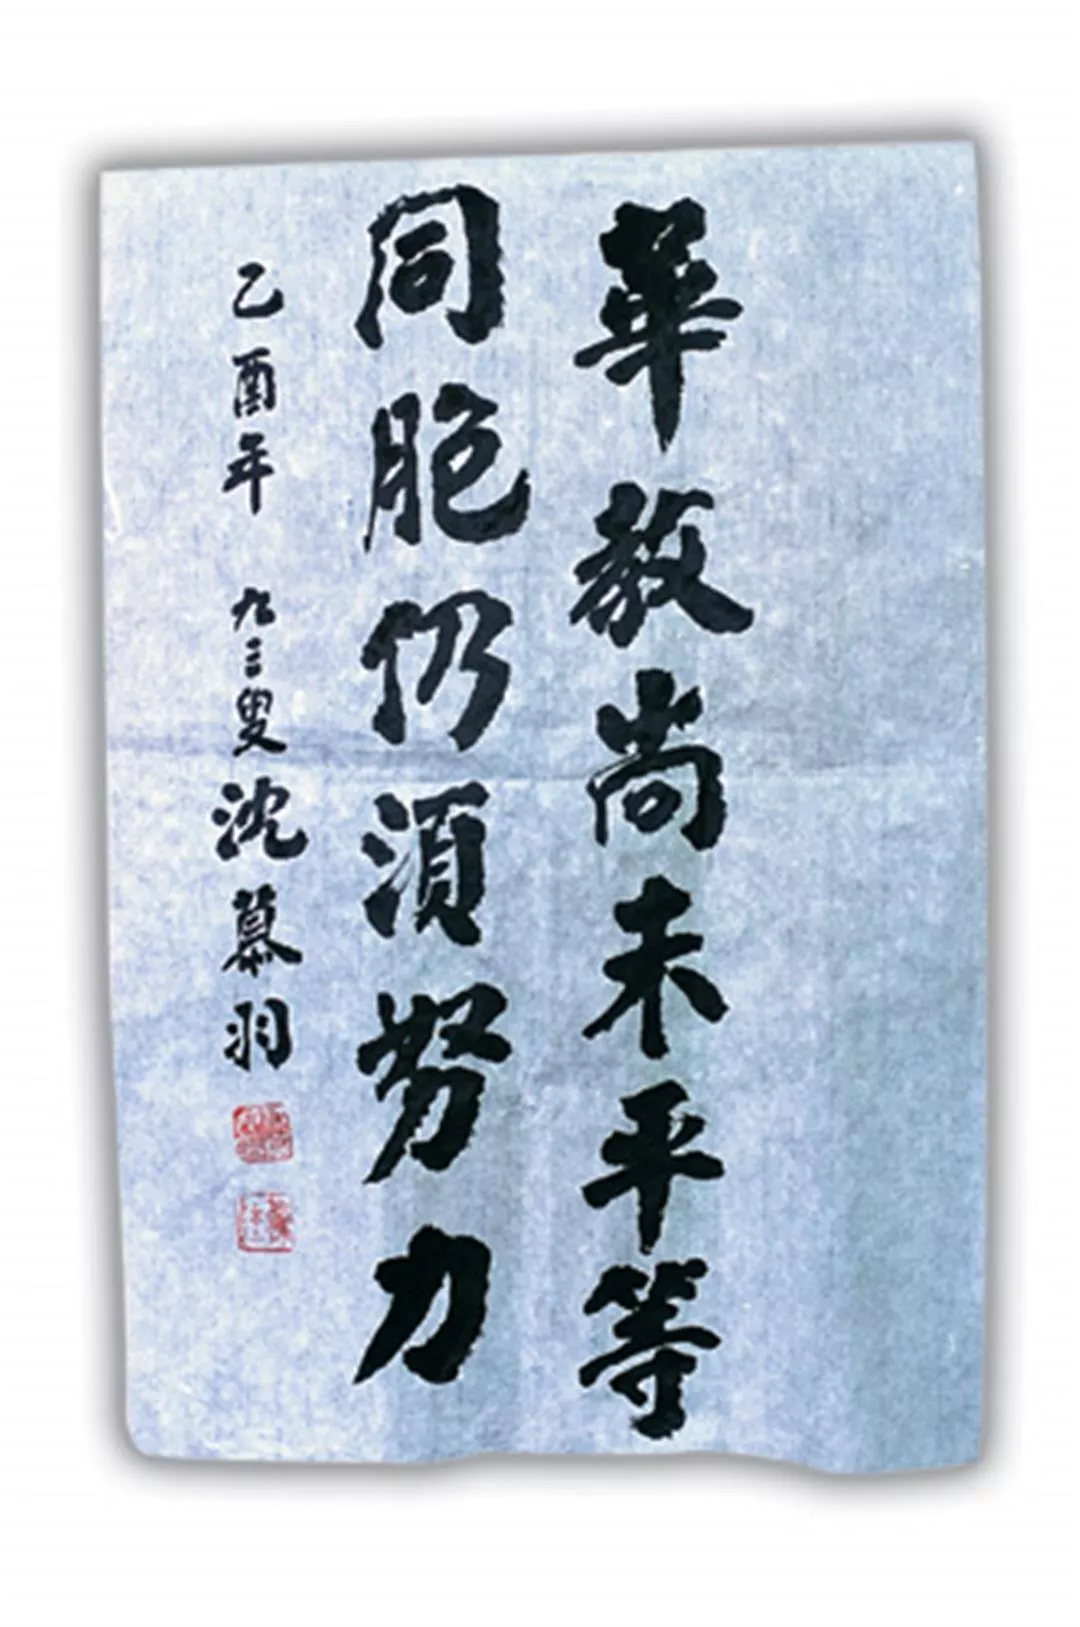 華教尚未平等
同胞仍須努力
乙酉年 九三叟沈慕羽